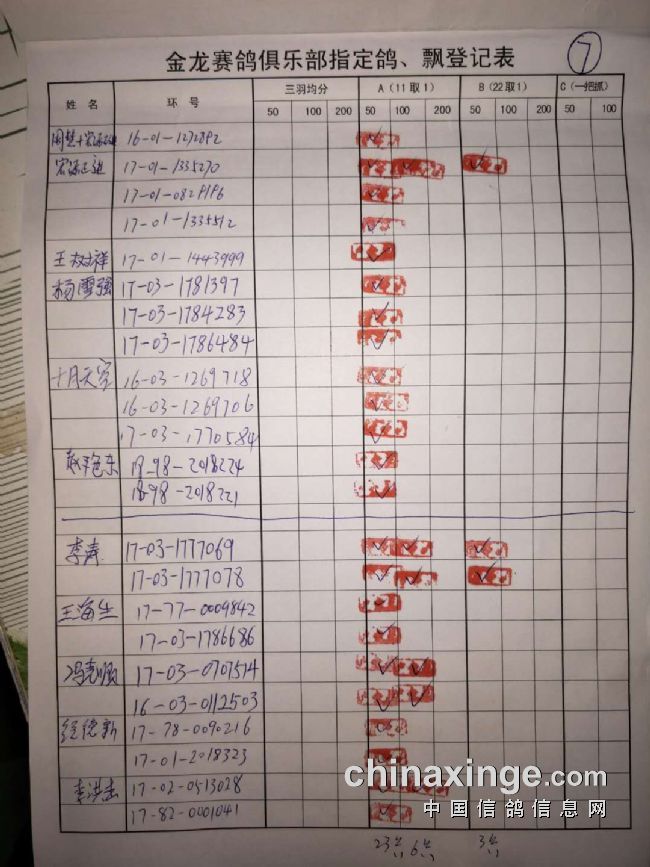 金龙赛鸽俱乐部指定鸽、飘登记表
7
姓 名 环 号 三羽均分 A (11取1) B (22取1) C (一把抓)
50 100 200 50 100 200 50 100 200 50 100
16-01-1272892
17-01-1335270
17-01-0829196
17-01-1335512
王树祥 17-01-1443999
杨雪强 17-03-1781397
17-03-1784283
17-03-1786484
十月天空 16-03-1269718
16-03-1269706
17-03-1770584
18-98-2018224
18-98-2018221
李涛 17-03-1777069
17-03-1777078
王海生 17-77-0009842
17-03-1786686
冯克顺 17-03-0707514
16-03-0112503
经德新 17-78-0090216
17-01-2018323
李洪杰 17-02-0513028
17-82-0001041
23 6 3
chinaxinge.com
中国信鸽信息网